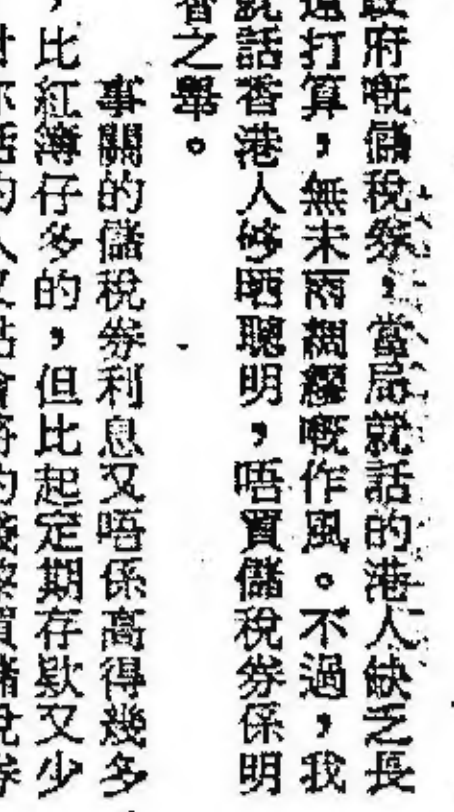 政府嘅儲稅券，當局就話的港人缺乏長
遠打算，無未雨綢繆嘅作風。不過，我
就話香港人够晒聰明，唔買儲稅券係明
智之舉。
事關的儲稅券利息又唔係高得幾多
，比紅簿仔多的，但比起定期存欵又少